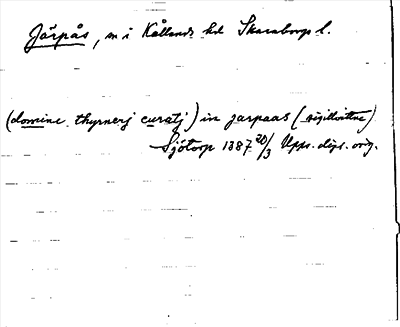 Järpås, sn i Kållands hd Skaraborgs l.
(domine thyrnerj curatj) in jarpaas (sigillvittne)
Sjötorp 1387 20/3 Upps. dipl. orig.